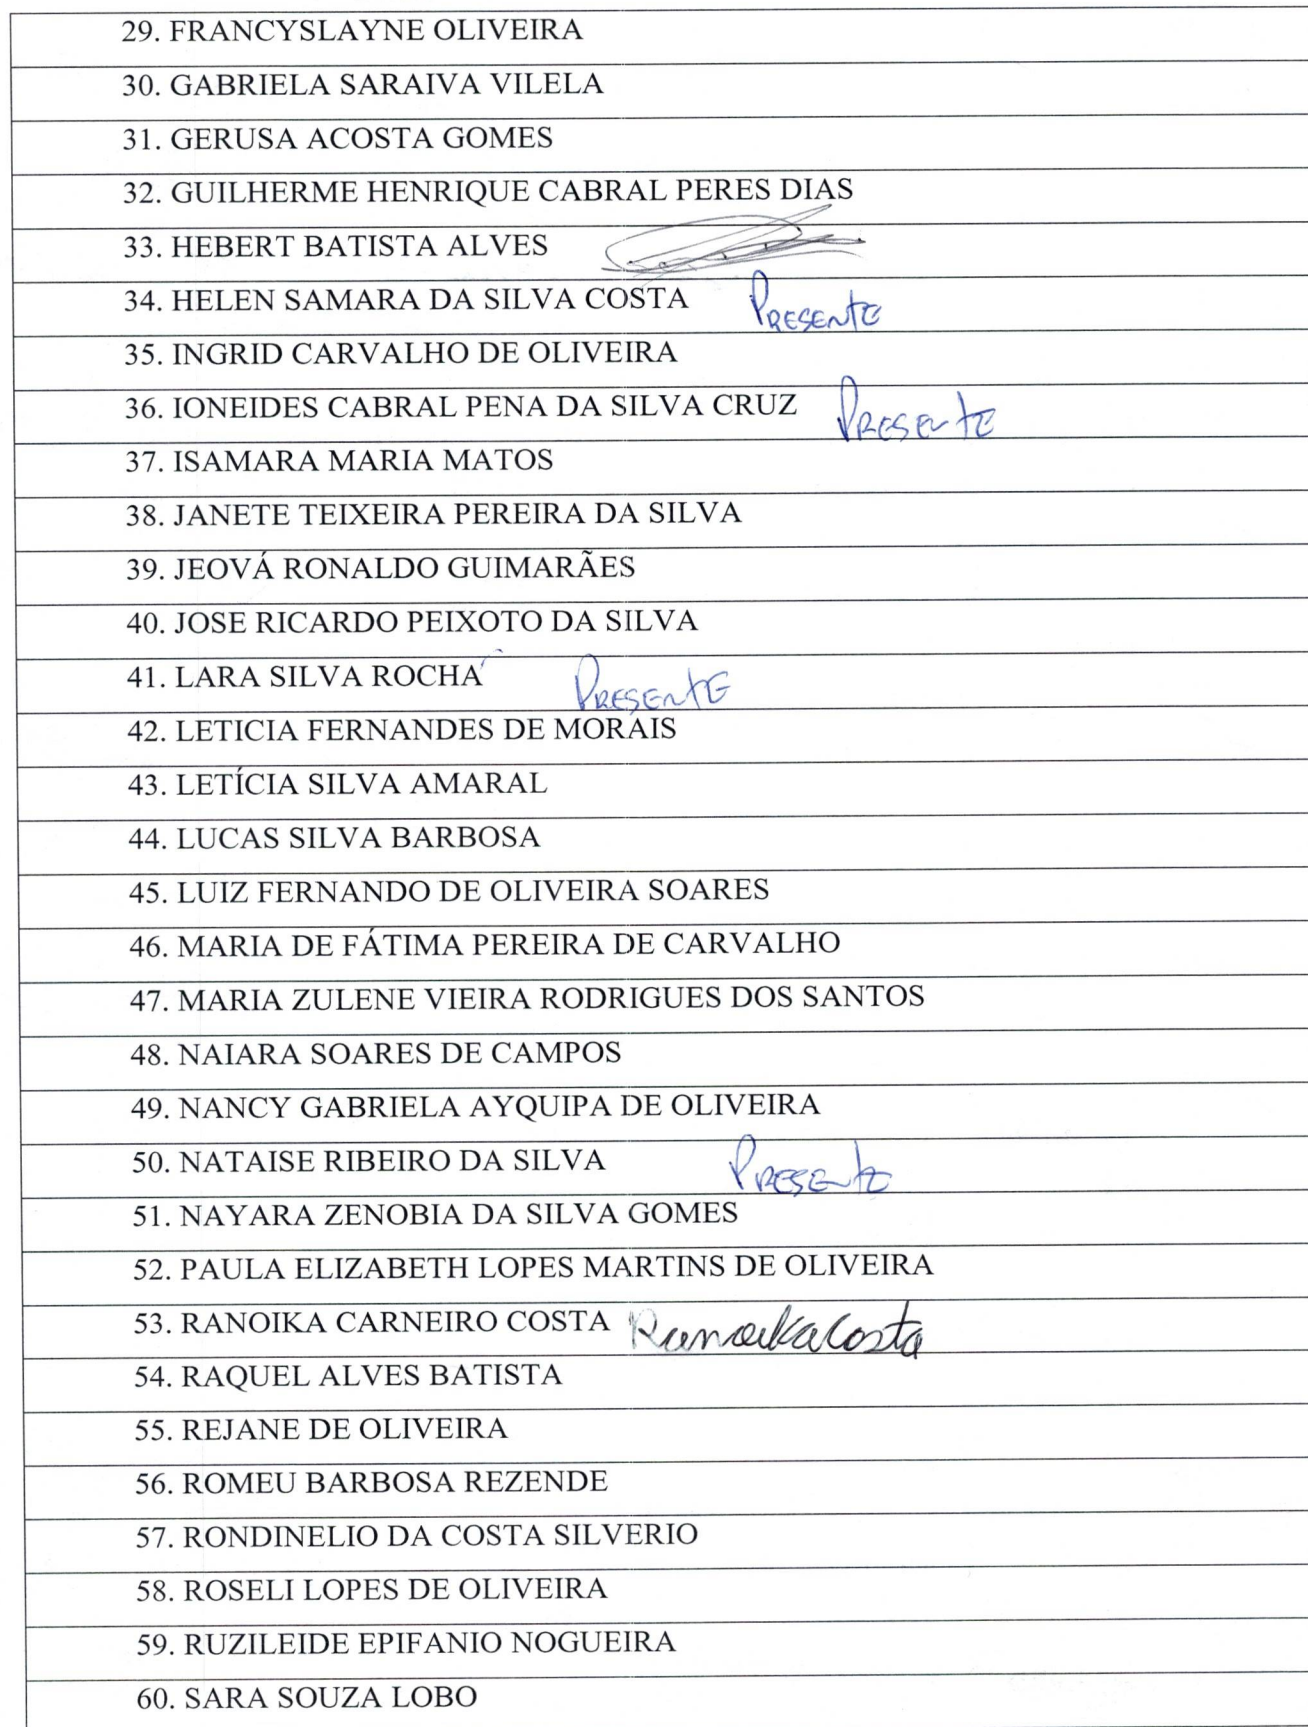 29. FRANCYSLAYNE OLIVEIRA
30. GABRIELA SARAIVA VILELA
31. GERUSA ACOSTA GOMES
32. GUILHERME HENRIQUE CABRAL PERES DIAS
33. HEBERT BATISTA ALVES
34. HELEN SAMARA DA SILVA COSTA PRESENTE
35. INGRID CARVALHO DE OLIVEIRA
36. IONEIDES CABRAL PENA DA SILVA CRUZ PRESENTE
37. ISAMARA MARIA MATOS
38. JANETE TEIXEIRA PEREIRA DA SILVA
39. JEOVÁ RONALDO GUIMARÃES
40. JOSE RICARDO PEIXOTO DA SILVA
41. LARA SILVA ROCHA PRESENTE
42. LETICIA FERNANDES DE MORAIS
43. LETÍCIA SILVA AMARAL
44. LUCAS SILVA BARBOSA
45. LUIZ FERNANDO DE OLIVEIRA SOARES
46. MARIA DE FÁTIMA PEREIRA DE CARVALHO
47. MARIA ZULENE VIEIRA RODRIGUES DOS SANTOS
48. NAIARA SOARES DE CAMPOS
49. NANCY GABRIELA AYQUIPA DE OLIVEIRA
50. NATAISE RIBEIRO DA SILVA PRESENTE
51. NAYARA ZENOBIA DA SILVA GOMES
52. PAULA ELIZABETH LOPES MARTINS DE OLIVEIRA
53. RANOIKA CARNEIRO COSTA Ranoika Costa
54. RAQUEL ALVES BATISTA
55. REJANE DE OLIVEIRA
56. ROMEU BARBOSA REZENDE
57. RONDINELIO DA COSTA SILVERIO
58. ROSELI LOPES DE OLIVEIRA
59. RUZILEIDE EPIFANIO NOGUEIRA
60. SARA SOUZA LOBO